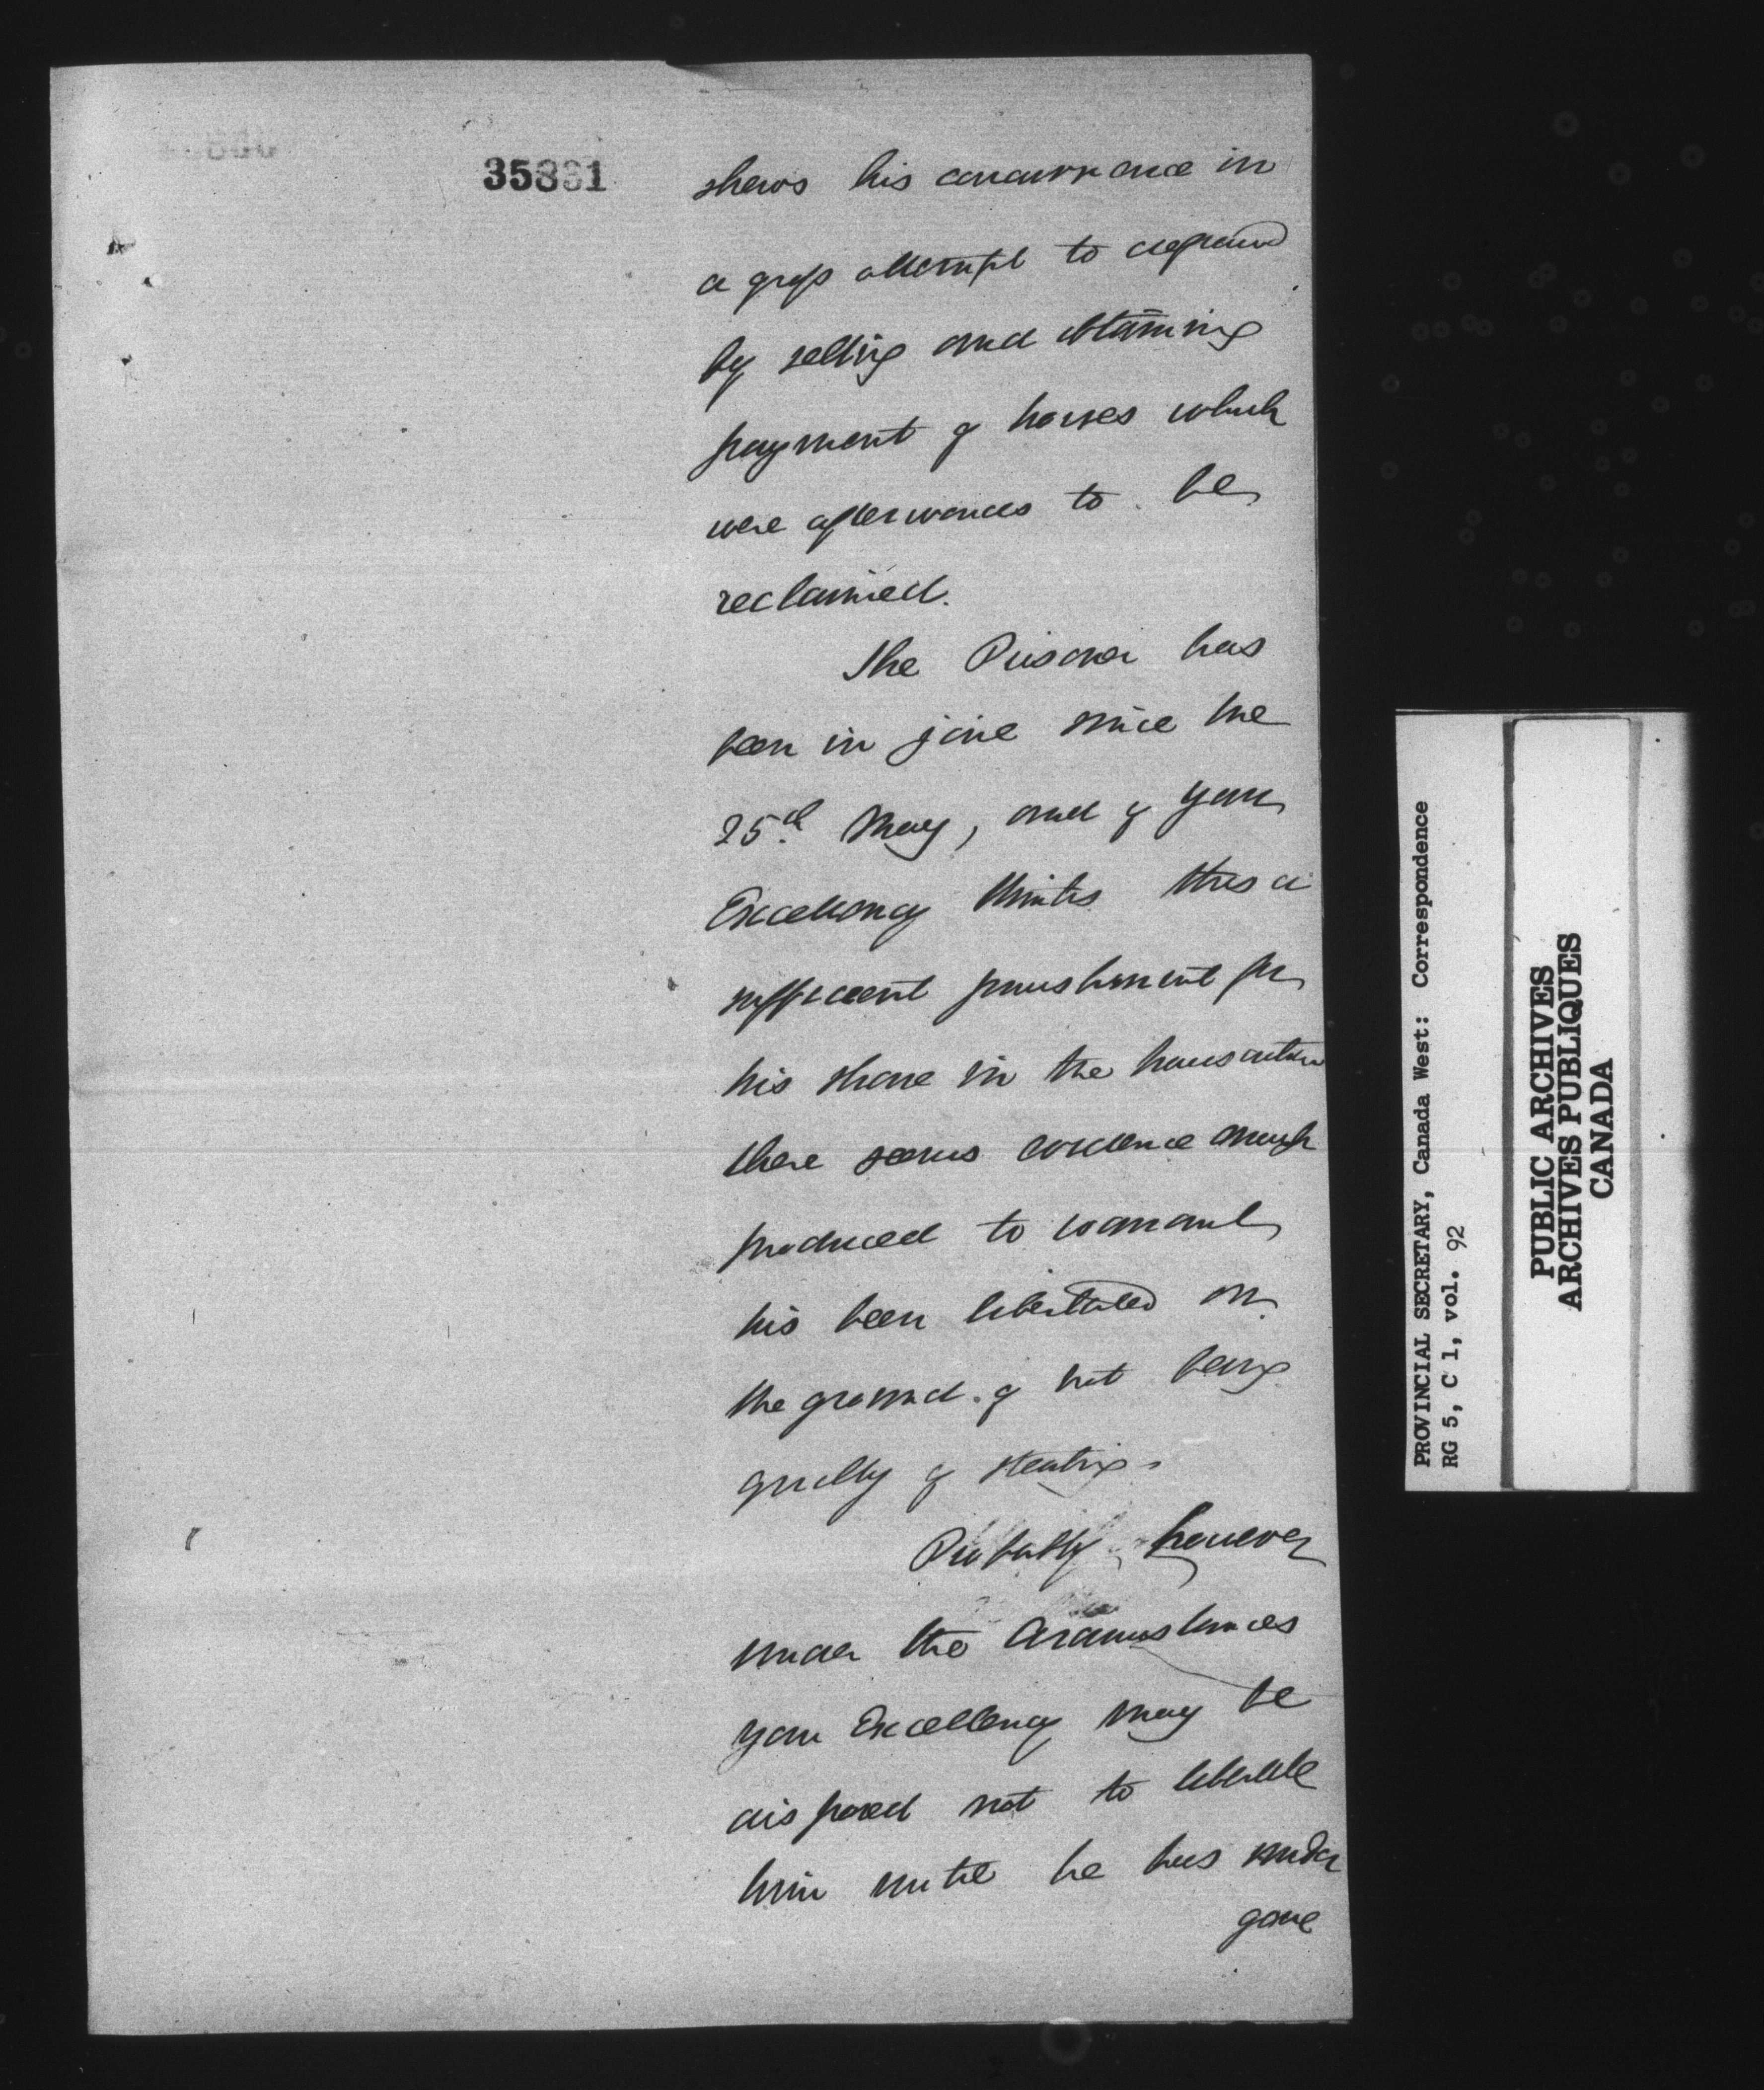 35831
shews his concurrence in
a gross attempt to defraud
by selling and obtaining
payment of horses which
were afterwards to be
reclaimed.
The Prisoner has
been in jail since the
25th May, and if your
Excellency thinks this a
sufficient punishment for
his share in the transaction
there seems evidence enough
produced to warrant
his been liberated on
the ground of not being
guilty of stealing.
Probably, however
under the Circumstances
your Excellency may be
disposed not to liberate
him until he has under
gone
PROVINCIAL SECRETARY, Canada West: Correspondence
RG 5, C 1, vol. 92
PUBLIC ARCHIVES
ARCHIVES PUBLIQUES
CANADA